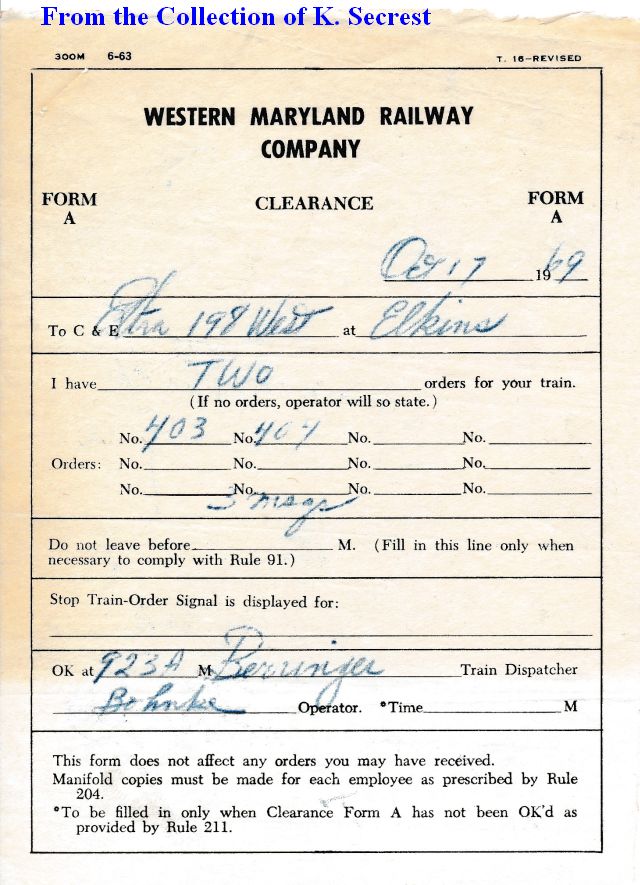 From the Collection of K. Secrest
300M 6-63 T. 16-REVISED
WESTERN MARYLAND RAILWAY
COMPANY
FORM A CLEARANCE FORM A
Oct 17 1969
To C & E Extra 198 West at Elkins
I have TWO orders for your train.
(If no orders, operator will so state.)
No. 403 No. 404 No. No.
Orders: No. No. No. No.
No. No. No. No.
3 msgs
Do not leave before M. (Fill in this line only when
necessary to comply with Rule 91.)
Stop Train-Order Signal is displayed for:
OK at 923A M Berringer Train Dispatcher
Bohnke Operator. *Time M
This form does not affect any orders you may have received.
Manifold copies must be made for each employee as prescribed by Rule
204.
*To be filled in only when Clearance Form A has not been OK'd as
provided by Rule 211.